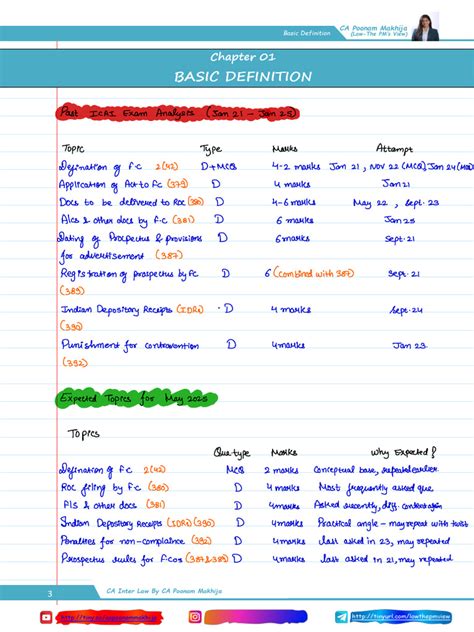 Basic Definition
CA Poonam Makhija
(Law-The PM's View)
Chapter 01
BASIC DEFINITION
Past ICAI Exam Analysis (Jan 21 - Jan 25)
Topic Type Marks Attempt
Defination of f.c 2(42) D+MCQ 4-2 marks Jan 21, Nov 22 (MCQ) Jan 24 (MCQ)
Application of Act to Fc (379) D 4 marks Jan 21
Docs to be delivered to Roc (380) D 4-6 marks May 22, Sept. 23
A/cs & other docs by f.c (381) D 6 marks Jan 25
Dating of Prospectus & provisions D 6 marks Sept. 21
for advertisement (387)
Registration of prospectus by fc D 6 (combined with 387) Sept. 21
(389)
Indian Depository Receipts (IDRs) D 4 marks Sept. 24
(390)
Punishment for contravention D 4 marks Jan 23.
(392)
Expected Topics for May 2025
Topics
Que type Marks Why Expected?
Defination of f.c 2(42) MCQ 2 marks Conceptual base, repeated earlier
Roc filing by fc (380) D 4 marks Most frequently asked que
F/S & other docs (381) D 4 marks Asked recently, diff.
Indian Depository Receipts (IDRs) (390) D 4 marks Practical angle - may repeat with twists
Penalties for non-complaince (392) D 4 marks last asked in 23, may repeat
Prospectus rules for f.cos (387 & 389) D 4 marks last asked in 21, may repeat
3 CA Inter Law By CA Poonam Makhija
https://tinyurl.com/lawthepmview